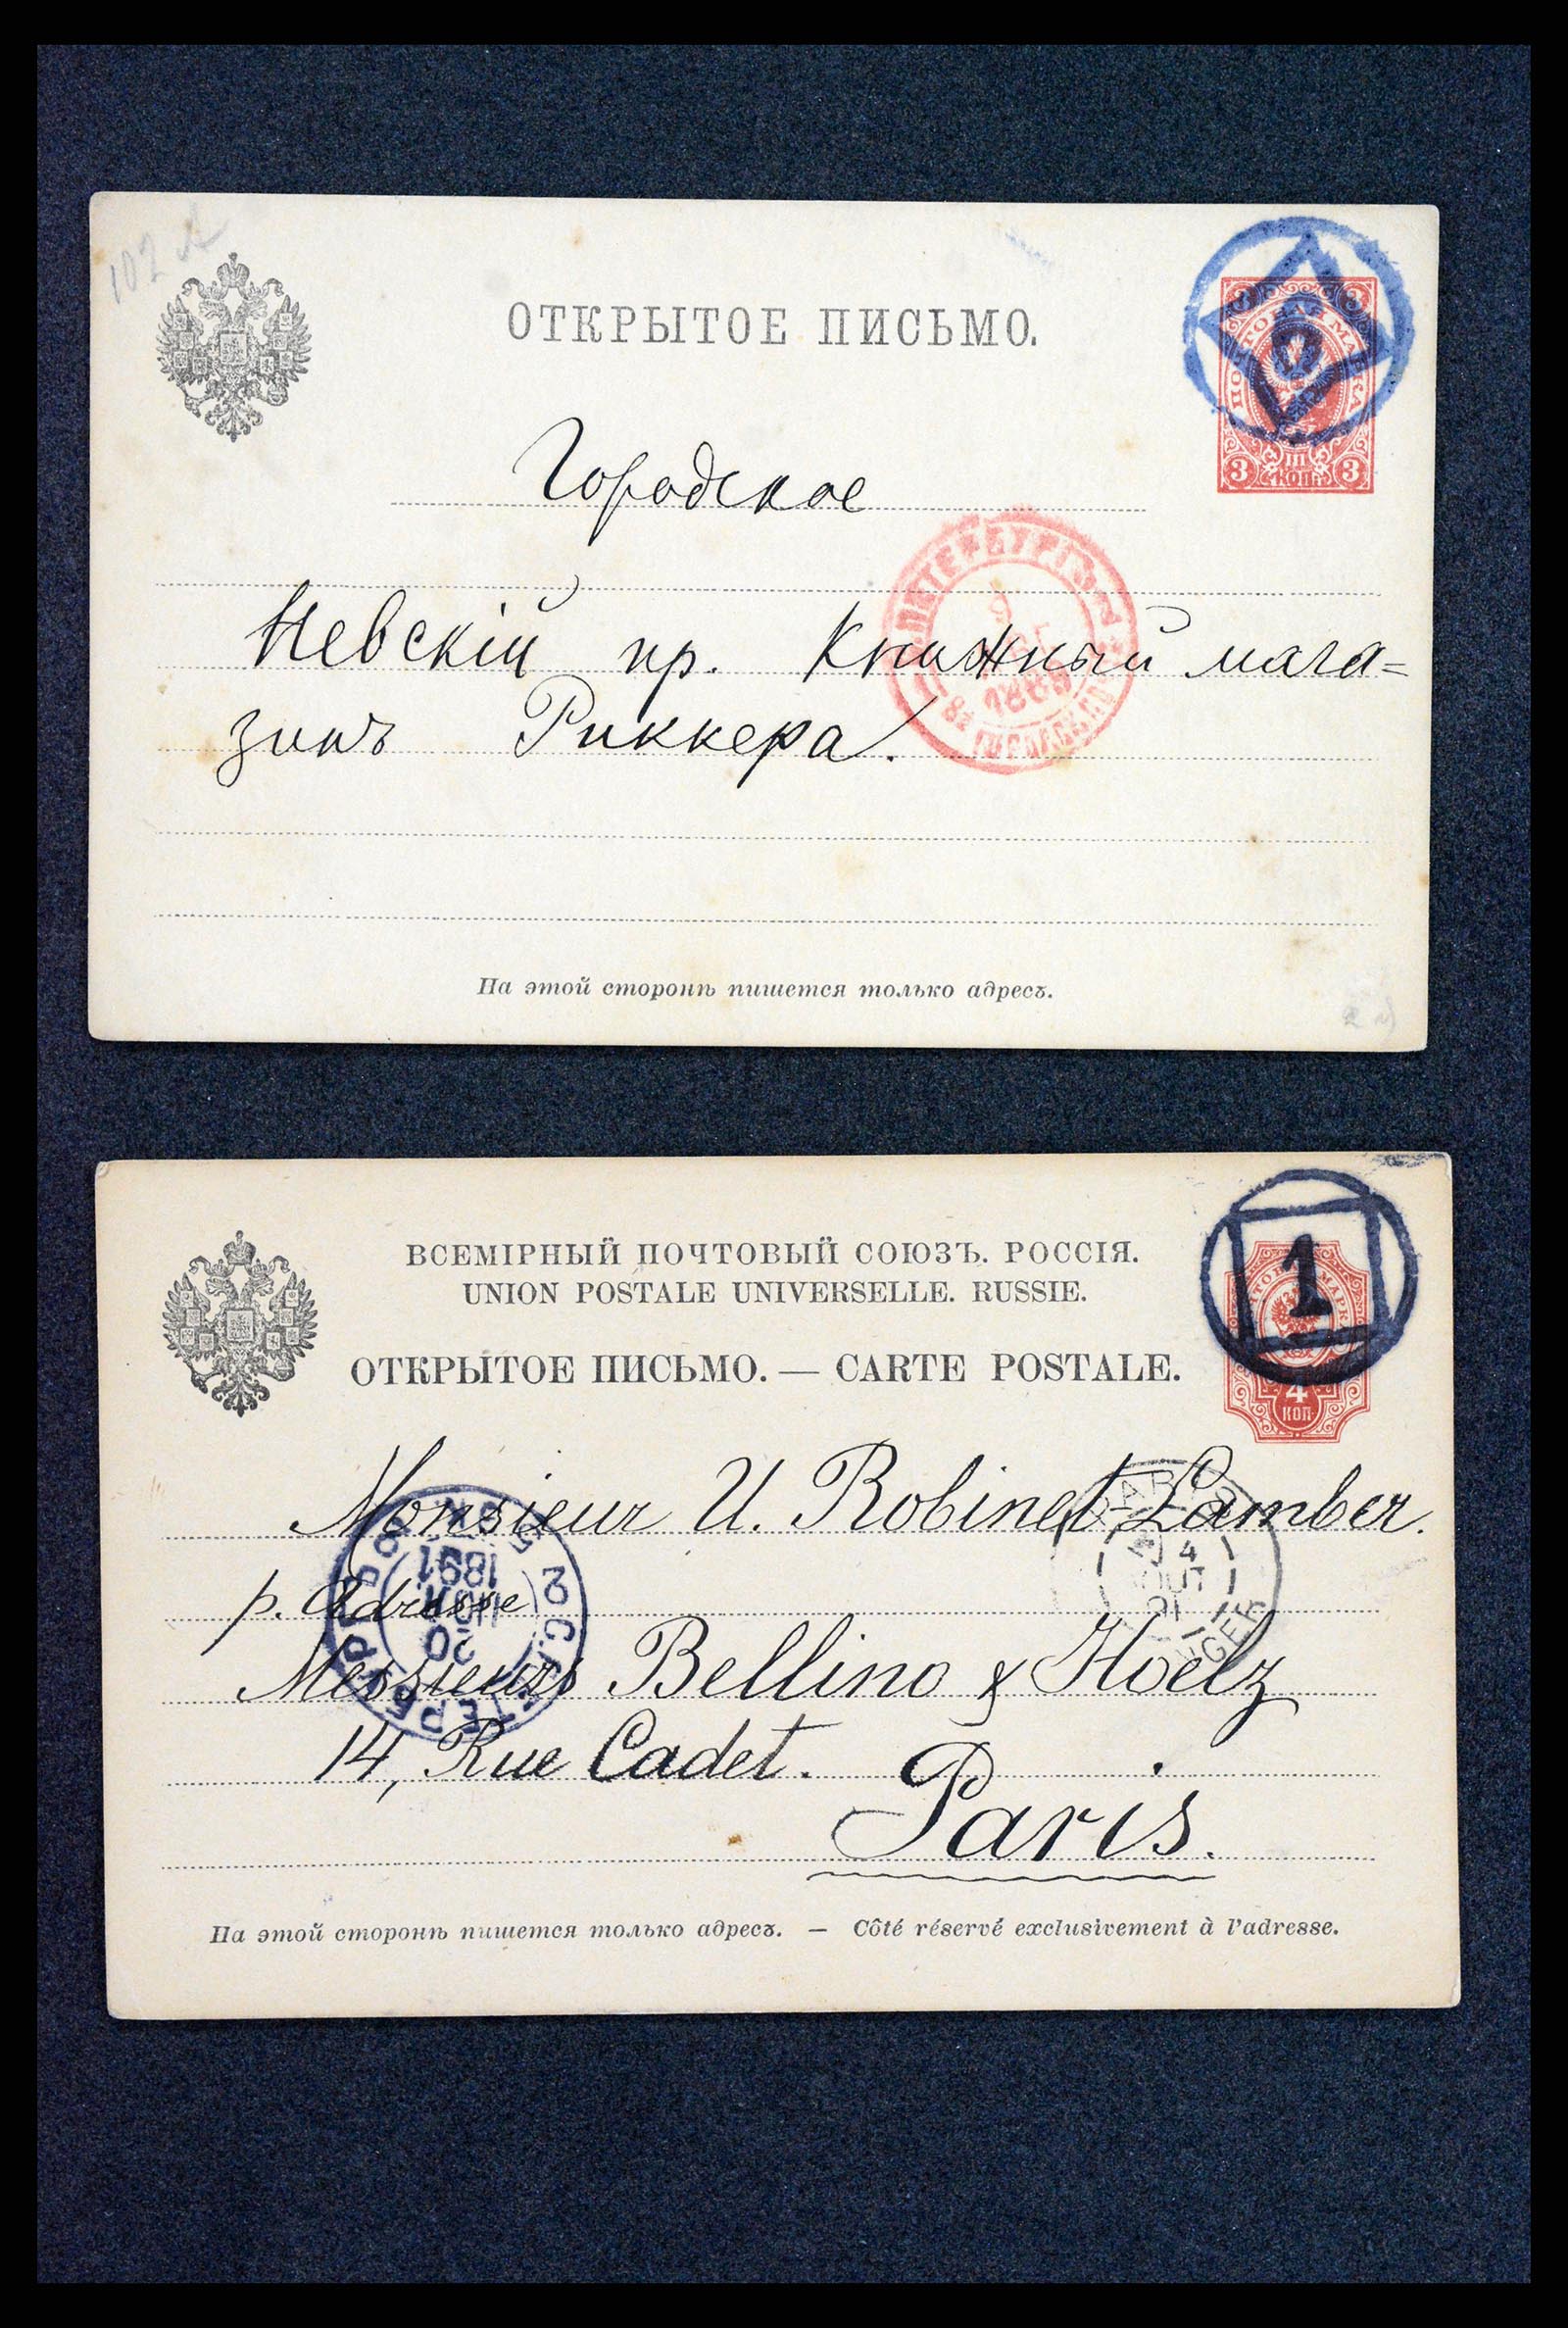 ОТКРЫТОЕ ПИСЬМО.
ПОЧТОВАЯ МАРКА
3 3
3 III КОП. 3
Городское
Невскій пр. Книжный мага=
зинъ Риккера.
На этой сторонѣ пишется только адресъ.
ВСЕМІРНЫЙ ПОЧТОВЫЙ СОЮЗЪ. РОССІЯ.
UNION POSTALE UNIVERSELLE. RUSSIE.
1
ОТКРЫТОЕ ПИСЬМО. — CARTE POSTALE.
4
КОП.
Monsieur U. Robinet-Lamber.
p. Adresse
Messieurs Bellino & Hoelz
14, Rue Cadet.
Paris.
20
1891
4
На этой сторонѣ пишется только адресъ. — Côté réservé exclusivement à l'adresse.